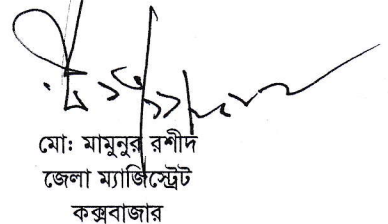 মো: মামুনুর রশীদ
জেলা ম্যাজিস্ট্রেট
কক্সবাজার